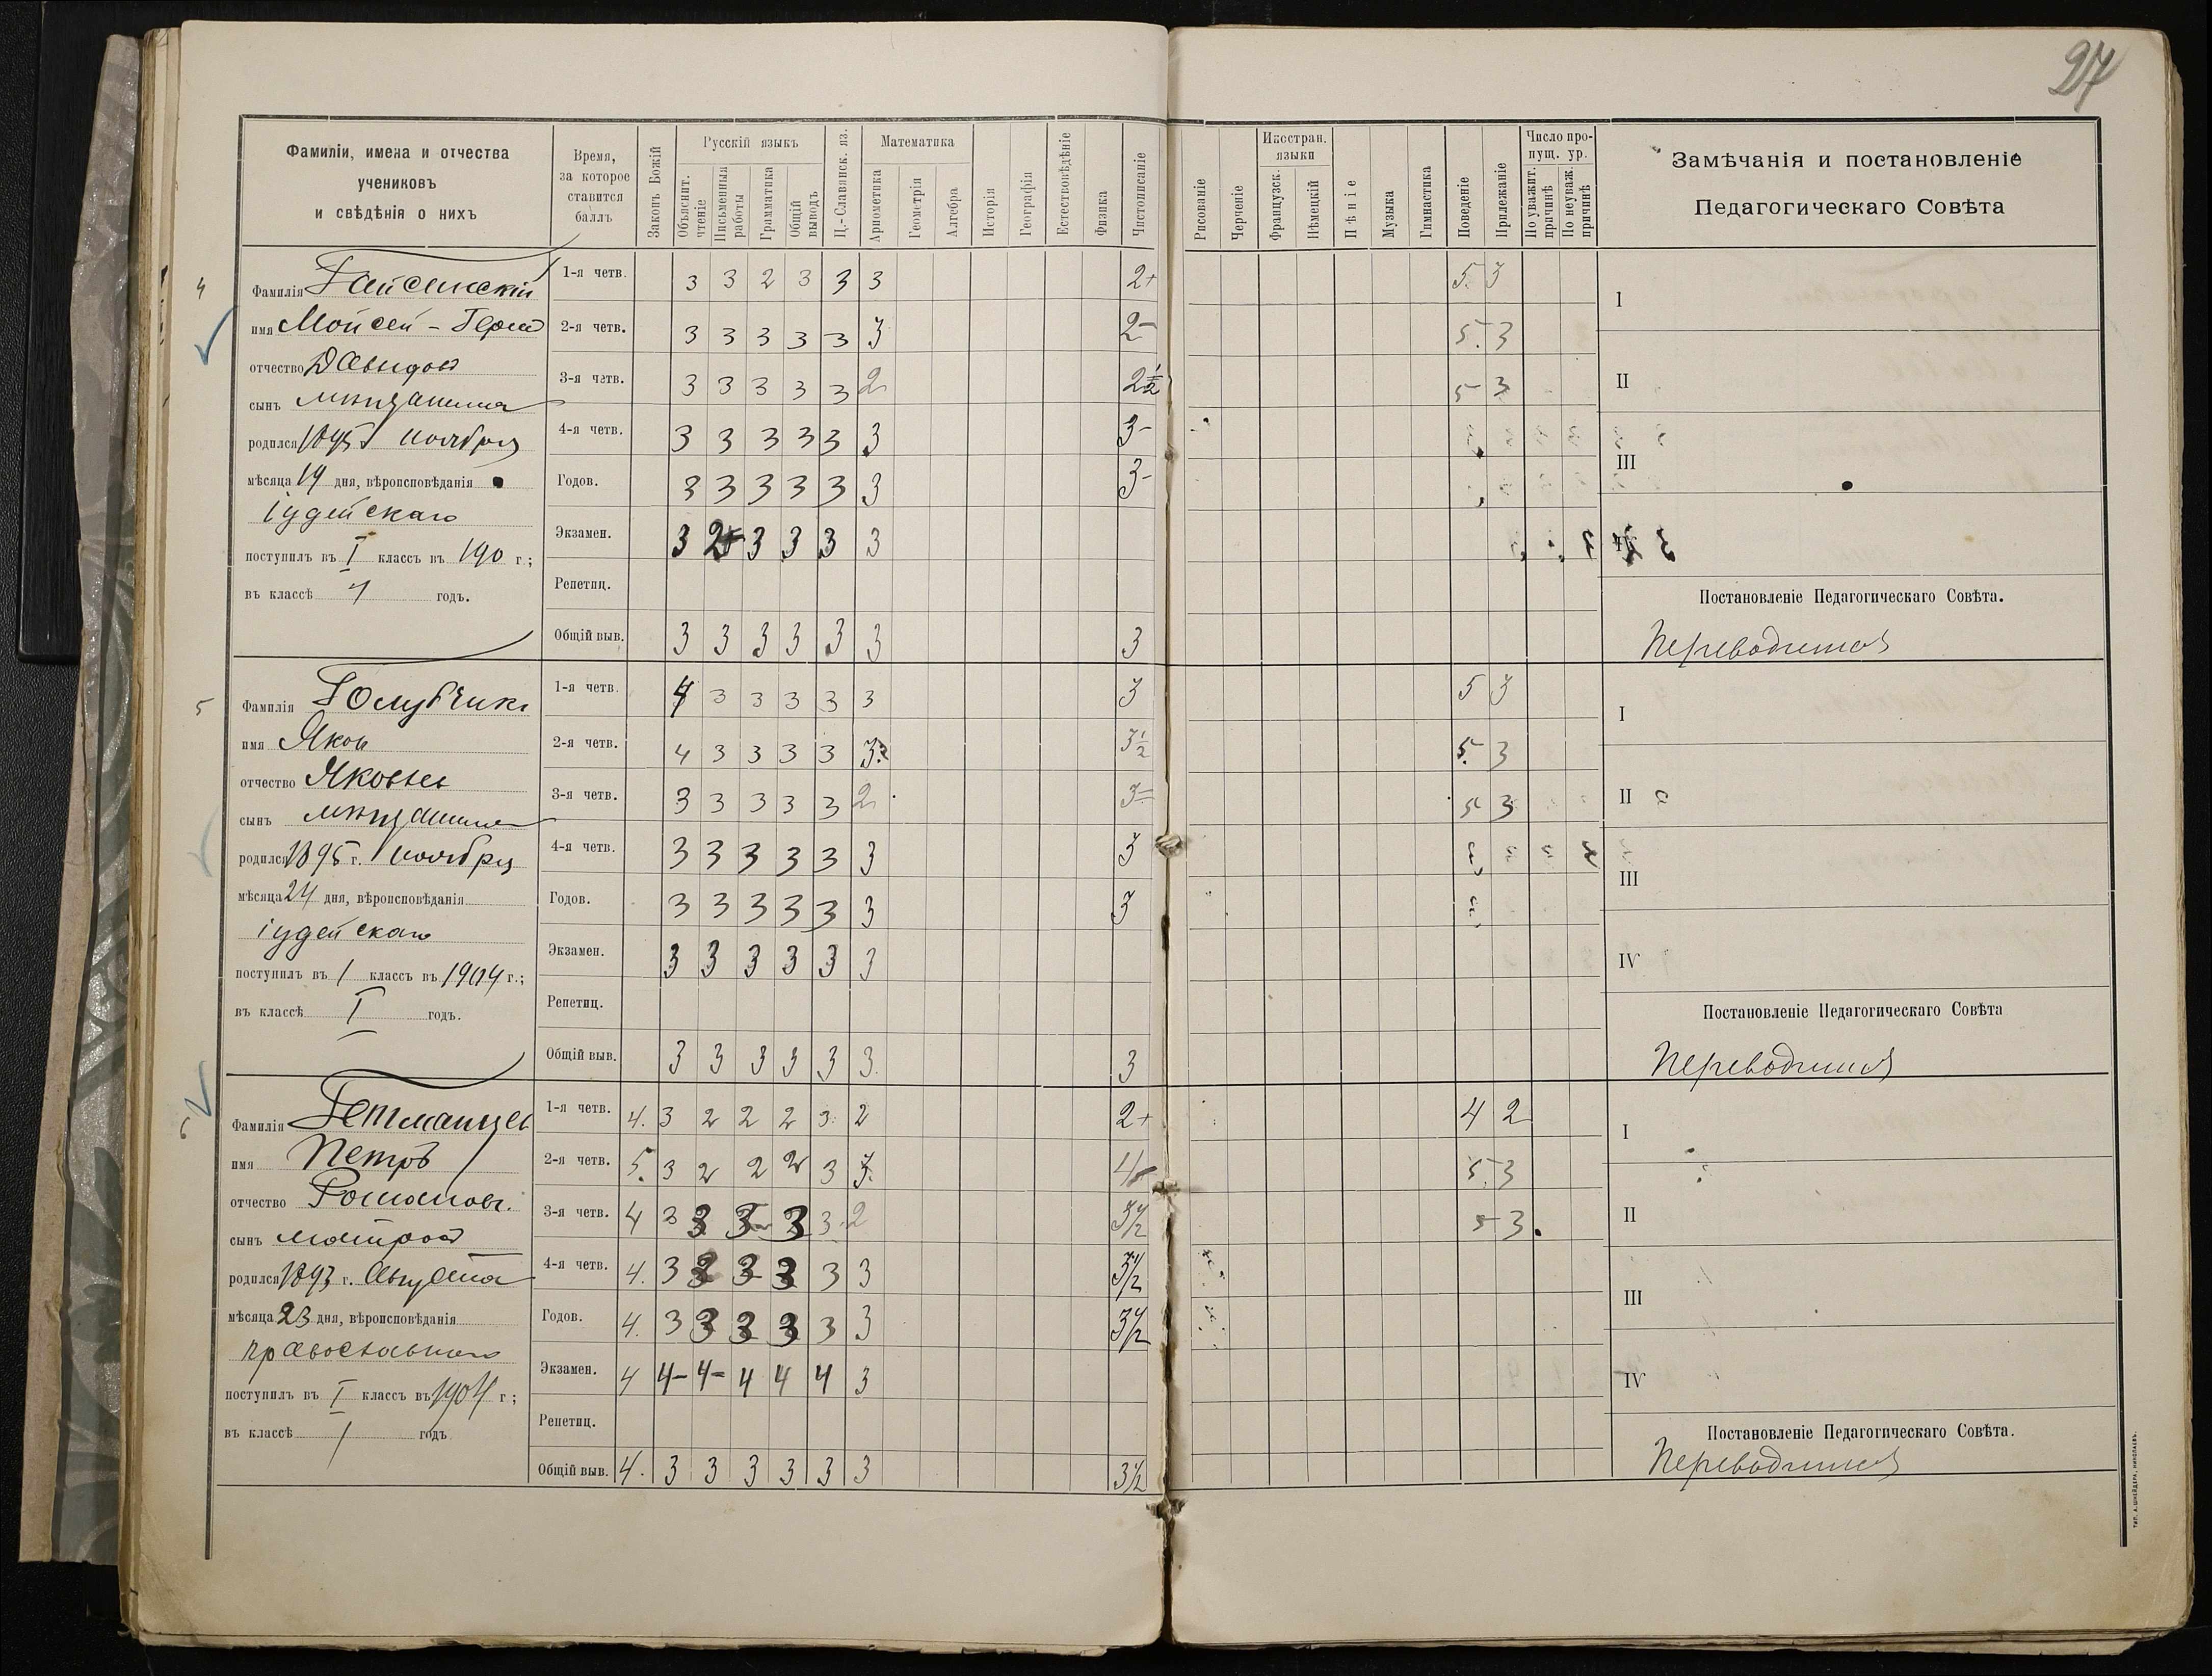 27
Фамиліи, имена и отчества
учениковъ
и свѣдѣнія о нихъ
Время,
за которое
ставится
баллъ
Законъ Божій
Русскій языкъ
Объяснит. чтеніе
Письменныя работы
Грамматика
Общій выводъ
Ц.-Славянск. яз.
Математика
Ариѳметика
Геометрія
Алгебра
Исторія
Географія
Естествовѣдѣніе
Физика
Чистописаніе
Рисованіе
Черченіе
Иностран.
языки
Французск.
Нѣмецкій
Пѣніе
Музыка
Гимнастика
Поведеніе
Прилежаніе
Число про-
пущ. ур.
По уважит. причинѣ
По неуваж. причинѣ
Замѣчанія и постановленіе
Педагогическаго Совѣта
4
Фамилія Гайсинскій
имя Мойсей-Герш
отчество Давидов
сынъ мѣщанина
родился 1895 ноября
мѣсяца 19 дня, вѣроисповѣданія
іудейскаго
поступилъ въ I классъ въ 190 г.;
въ классѣ 1 годъ.
1-я четв. 3 3 2 3 3 3 2+ 5. 3
2-я четв. 3 3 3 3 3 3 2- 5. 3
3-я четв. 3 3 3 3 3 2 2½ 5 3
4-я четв. 3 3 3 3 3 3 3-
Годов. 3 3 3 3 3 3 3-
Экзамен. 3 2+ 3 3 3 3
Репетиц.
Общій выв. 3 3 3 3 3 3 3
I
II
III
Постановленіе Педагогическаго Совѣта.
Переводится
5
Фамилія Голубчикъ
имя Яков
отчество Яковлев
сынъ мѣщанина
родился 1895 г. ноября
мѣсяца 24 дня, вѣроисповѣданія
іудейскаго
поступилъ въ 1 классъ въ 1904 г.;
въ классѣ I годъ.
1-я четв. 4 3 3 3 3 3 3 5 3
2-я четв. 4 3 3 3 3 3 3½ 5. 3
3-я четв. 3 3 3 3 3 2 3= 5 3
4-я четв. 3 3 3 3 3 3 3
Годов. 3 3 3 3 3 3 3
Экзамен. 3 3 3 3 3 3
Репетиц.
Общій выв. 3 3 3 3 3 3. 3
I
II
III
IV
Постановленіе Педагогическаго Совѣта
Переводится
6
Фамилія Гетманцев
имя Петръ
отчество Романов.
сынъ матроса
родился 1893 г. Августа
мѣсяца 23 дня, вѣроисповѣданія
православнаго
поступилъ въ I классъ въ 1904 г;
въ классѣ 1 годъ
1-я четв. 4. 3 2 2 2 3 2 2+ 4 2
2-я четв. 5. 3 2 2 2 3 3. 4- 5. 3
3-я четв. 4 3 3 3 3 3 2 3½ 5 3.
4-я четв. 4. 3 3 3 3 3 3 3½
Годов. 4. 3 3 3 3 3 3 3½
Экзамен. 4 4- 4- 4 4 4 3
Репетиц.
Общій выв. 4. 3 3 3 3 3 3 3½
I
II
III
IV
Постановленіе Педагогическаго Совѣта.
Переводится
ТИП. А. ШНЕЙДЕРА, НИКОЛАЕВЪ.